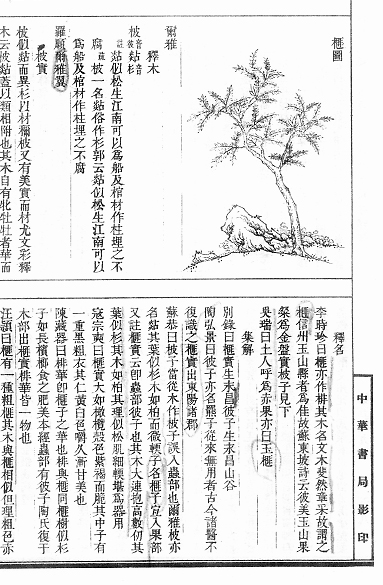 榧圖
爾雅
釋木
柀 音彼 䊾 音杉
䊾似松生江南可以爲船及棺材作柱埋之不
腐 柀一名䊾俗作杉郭云䊾似松生江南可以
爲船及棺材作柱埋之不腐
羅願爾雅翼
柀實
柀似䊾而異杉以材稱柀又有美實而材尤文彩釋
木云柀䊾蓋以類相附也其木自有牝牡牡者華而
釋名
李時珍曰榧亦作棑其木名文木斐然章采故謂之
榧信州玉山縣者爲佳故蘇東坡詩云彼美玉山果
粲爲金盤實柀子見下
吳瑞曰土人呼爲赤果亦曰玉榧
集解
別錄曰榧實生永昌彼子生永昌山谷
陶弘景曰彼子亦名羆子從來無用者古今諸醫不
復識之榧實出東陽諸郡
蘇恭曰彼子當從木作柀子誤入蟲部也爾雅柀亦
名䊾其葉似杉木如柏而微軟子名榧子宜入果部
又註榧實云即蟲部彼子也其木大連抱高數仞其
葉似杉其木如柏其理似松肌細軟堪爲器用
寇宗奭曰榧實大如橄欖殼色紫褐而脆其中子有
一重黑粗衣其仁黃白色嚼久漸甘美也
陳藏器曰棑華即榧子之華也棑與榧同榧樹似杉
子如長檳榔食之肥美本經蟲部有彼子陶氏復于
木部出榧實棑華皆一物也
汪穎曰榧有一種粗榧其木與榧相似但理粗色赤
中華書局影印